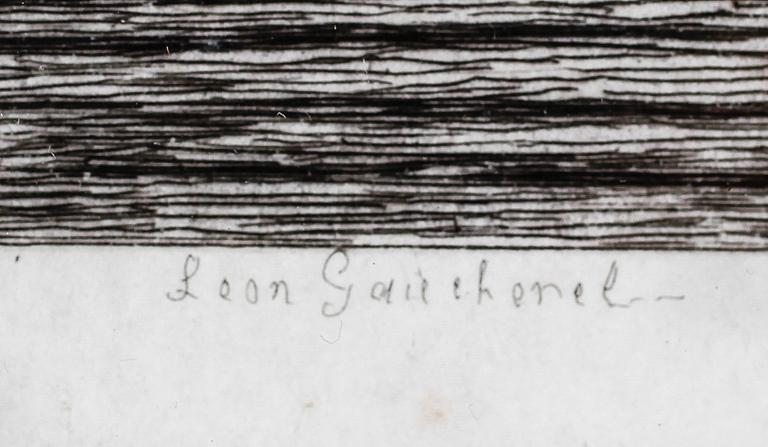 Leon Gaucherel